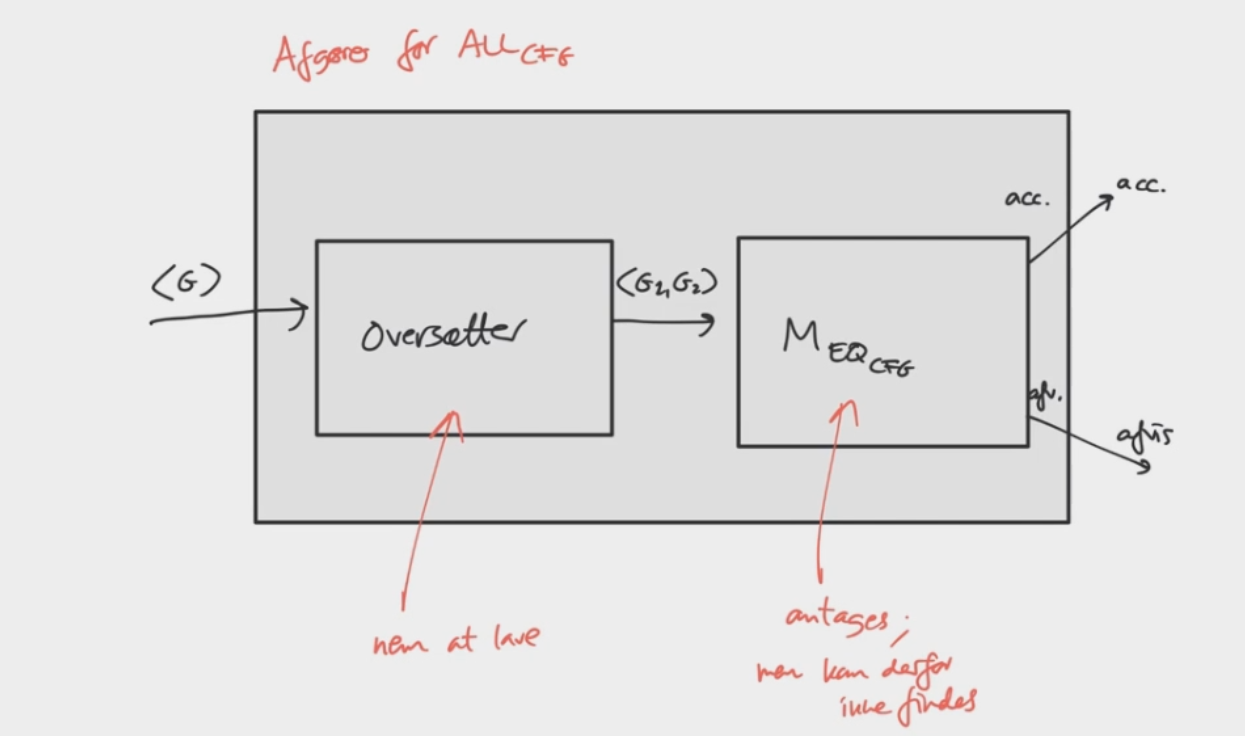 Afgører for ALL_CFG
acc.
acc.
⟨G⟩
Oversætter
⟨G1, G2⟩
M_EQ_CFG
afv.
afvis
nem at lave
antages;
men kan derfor
ikke findes